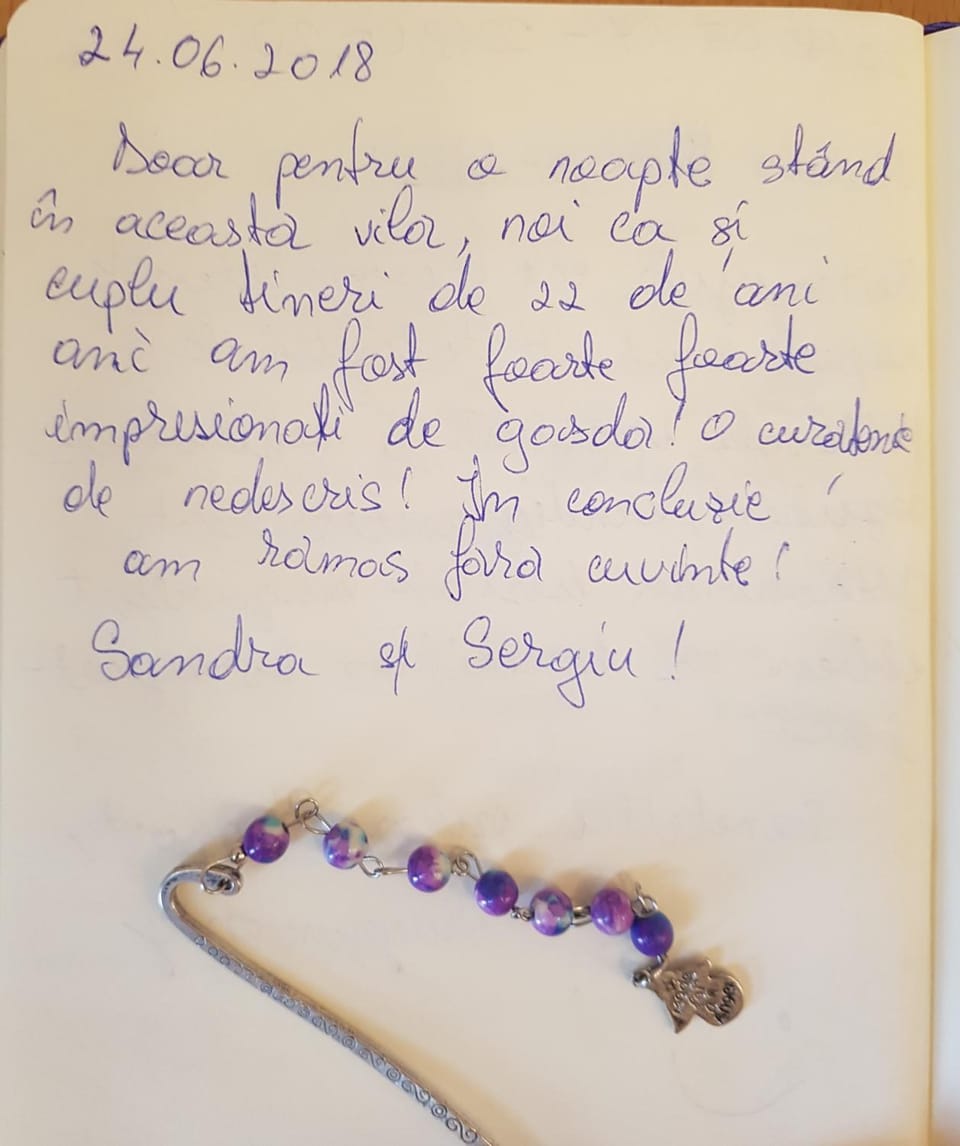 24.06.2018
Doar pentru o noapte stând
în aceasta vila, noi ca și
cuplu tineri de 22 de ani
am fost foarte foarte
impresionați de gazda! O curatenie
de nedescris! În concluzie
am ramas fara cuvinte!
Sandra și Sergiu!
Angel